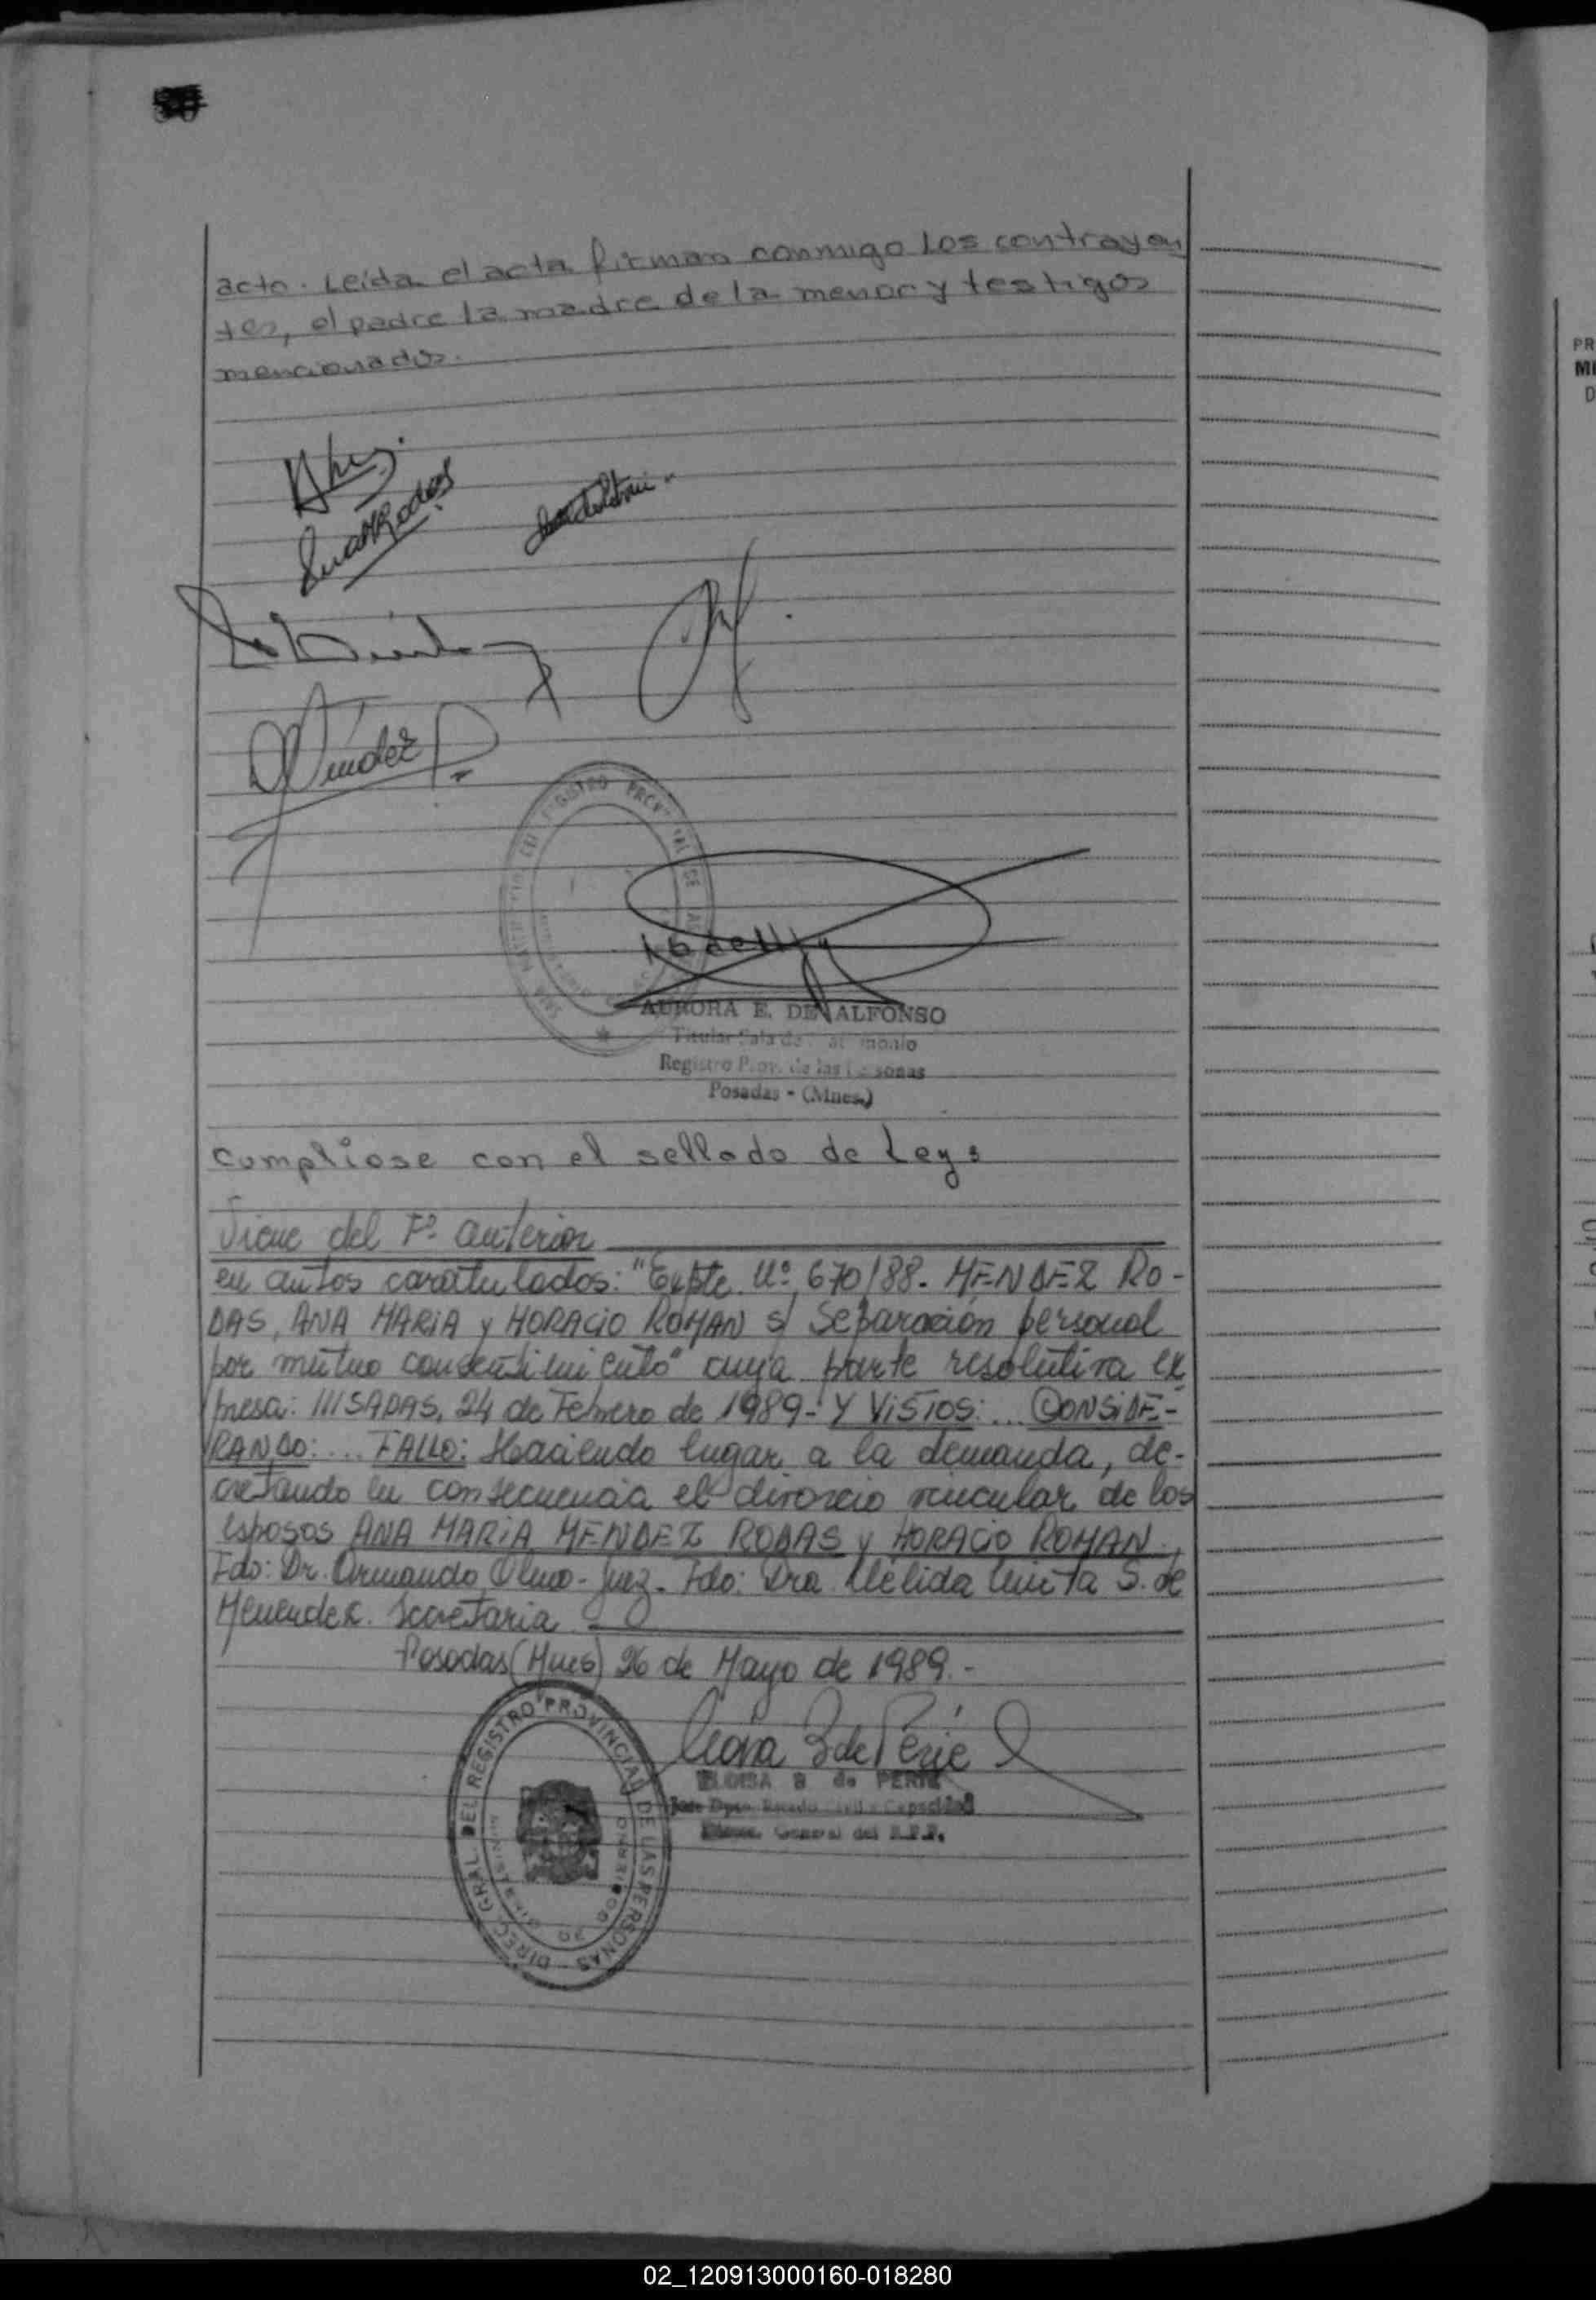 acto. Leída el acta firman conmigo los contrayen
tes, el padre la madre de la menor y testigos
mencionados.
AnaMRodas
Méndez
REGISTRO PROVINCIAL DE LAS
AURORA E. DE ALFONSO
Titular Sala de
Registro Prov. de las Personas
Posadas - (Mnes.)
Cumpliose con el sellado de Ley
Viene del Fº anterior
en autos caratulados: "Expte. Nº 670/88. MENDEZ RO-
DAS, ANA MARIA y HORACIO ROMAN s/ Separación personal
por mutuo consentimiento" cuya parte resolutiva ex
presa: ///SADAS, 24 de Febrero de 1989- Y VISTOS: ... CONSIDE-
RANDO: ... FALLO: Haciendo lugar a la demanda, de-
cretando en consecuencia el divorcio vincular de los
esposos ANA MARIA MENDEZ RODAS y HORACIO ROMAN.
Fdo: Dr. Armando Olmo - Juez - Fdo: Dra. Nélida S. de
Menendez. Secretaria
Posadas (Mnes) 26 de Mayo de 1989.-
DIREC. GRAL. DEL REGISTRO PROVINCIAL DE LAS PERSONAS
B de Perié
ELOISA B de PERIE
Jefe Dpto. Estado Civil y Capacidad
General del R.P.P.
PR
MI
D
02_120913000160-018280